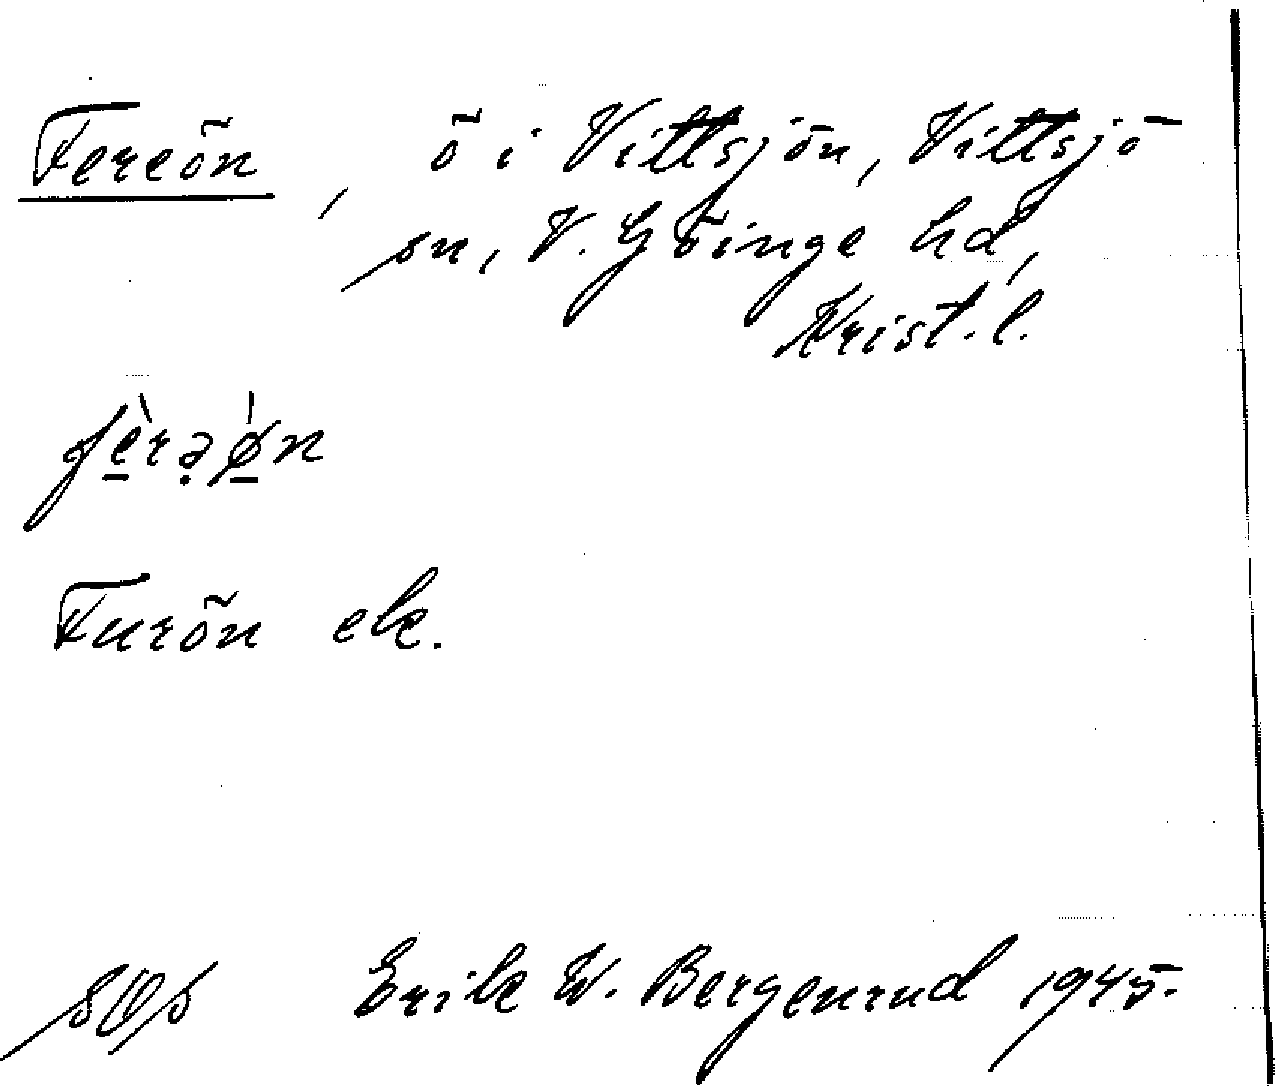 Fereön, ö i Vittsjön, Vittsjö
sn, V. Göinge hd,
Krist. l.
fèrəǿn
Furön ek.
Erik W. Bergenrud 1945.